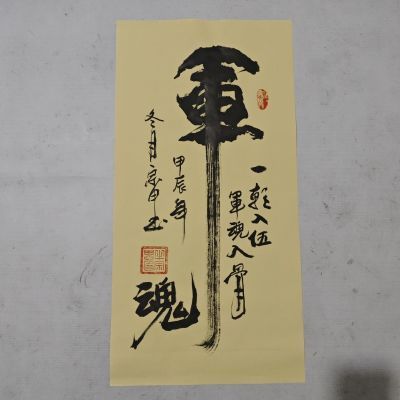 軍
魂
一朝入伍
軍魂入骨
甲辰年
冬月